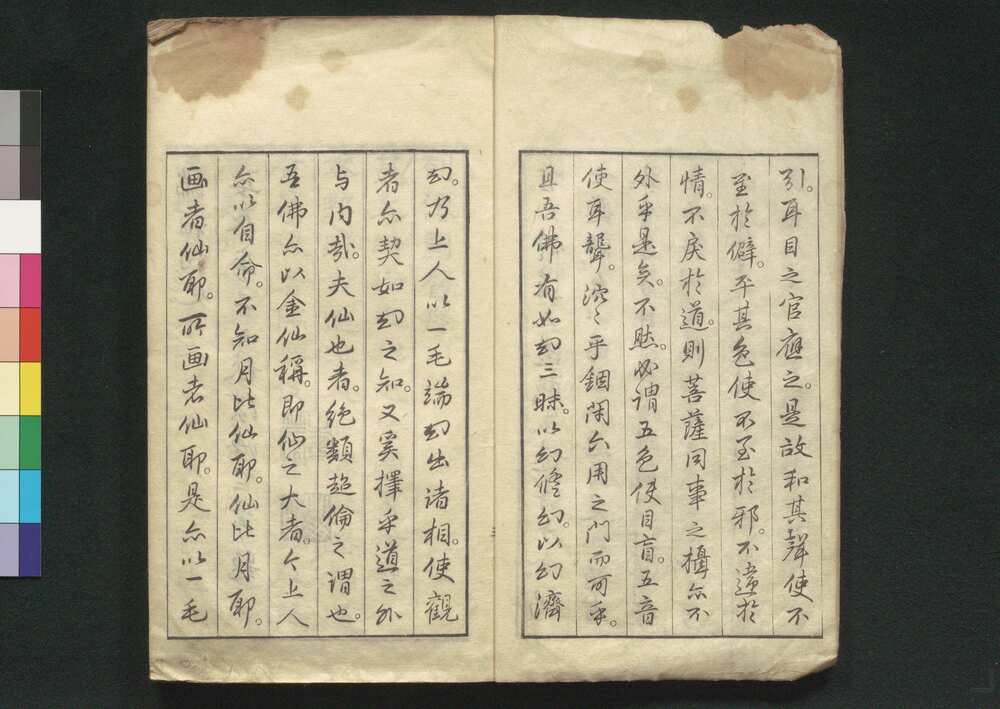 引。耳目之官應之。是故和其聲使不
至於僻。平其色使不至於邪。不違於
情。不戾於道。則菩薩同事之攝亦不
外乎是矣。不然。必謂五色使目盲。五音
使耳聾。乎錮閉六用之門而可乎。
且吾佛有如幻三昧。以幻修幻。以幻濟
幻。乃上人以一毛端幻出諸相。使觀
者亦契如幻之知。又奚擇乎道之外
与内哉。夫仙也者。絶類超倫之謂也。
吾佛亦以金仙稱。即仙之大者。今上人
亦以自命。不知月比仙耶。仙比月耶。
画者仙耶。所画者仙耶。是亦以一毛